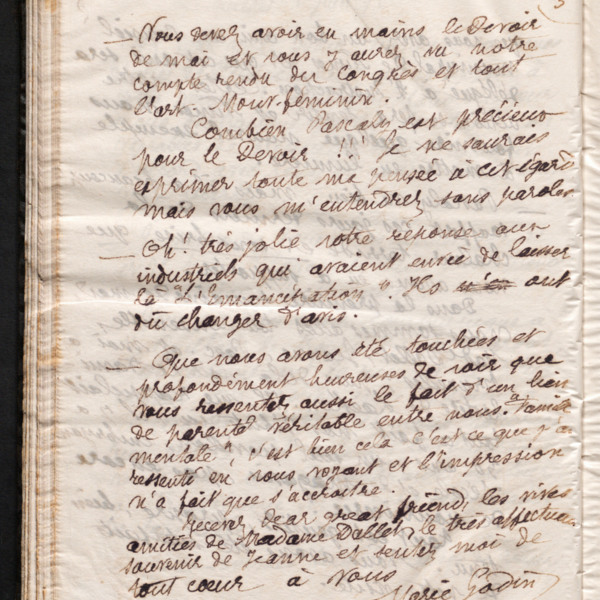 — Vous devez avoir en mains le Devoir
de mai et vous y aurez vu notre
compte rendu du Congrès et tout
l'art. Mouv-féminin.
Combien Pascaly est précieux
pour le Devoir !!! Je ne saurais
exprimer toute ma pensée à cet égard
mais vous m'entendrez sans paroles
— Oh! très jolie votre réponse aux
industriels qui avaient envie de laisser
là "L'Emancipation". Ils ont
dû changer d'avis.
— Que nous avons été touchées et
profondément heureuses de voir que
vous ressentez aussi le fait d'un lien
de parenté véritable entre nous. "Famille
mentale", c'est bien cela c'est ce que j'ai
ressenti en vous voyant et l'impression
n'a fait que s'accroître.
Recevez dear great friend, les vives
amitiés de Madame Dallet, le très affectueux
souvenir de Jeanne et sentez moi de
tout cœur à Vous
Marie Godin